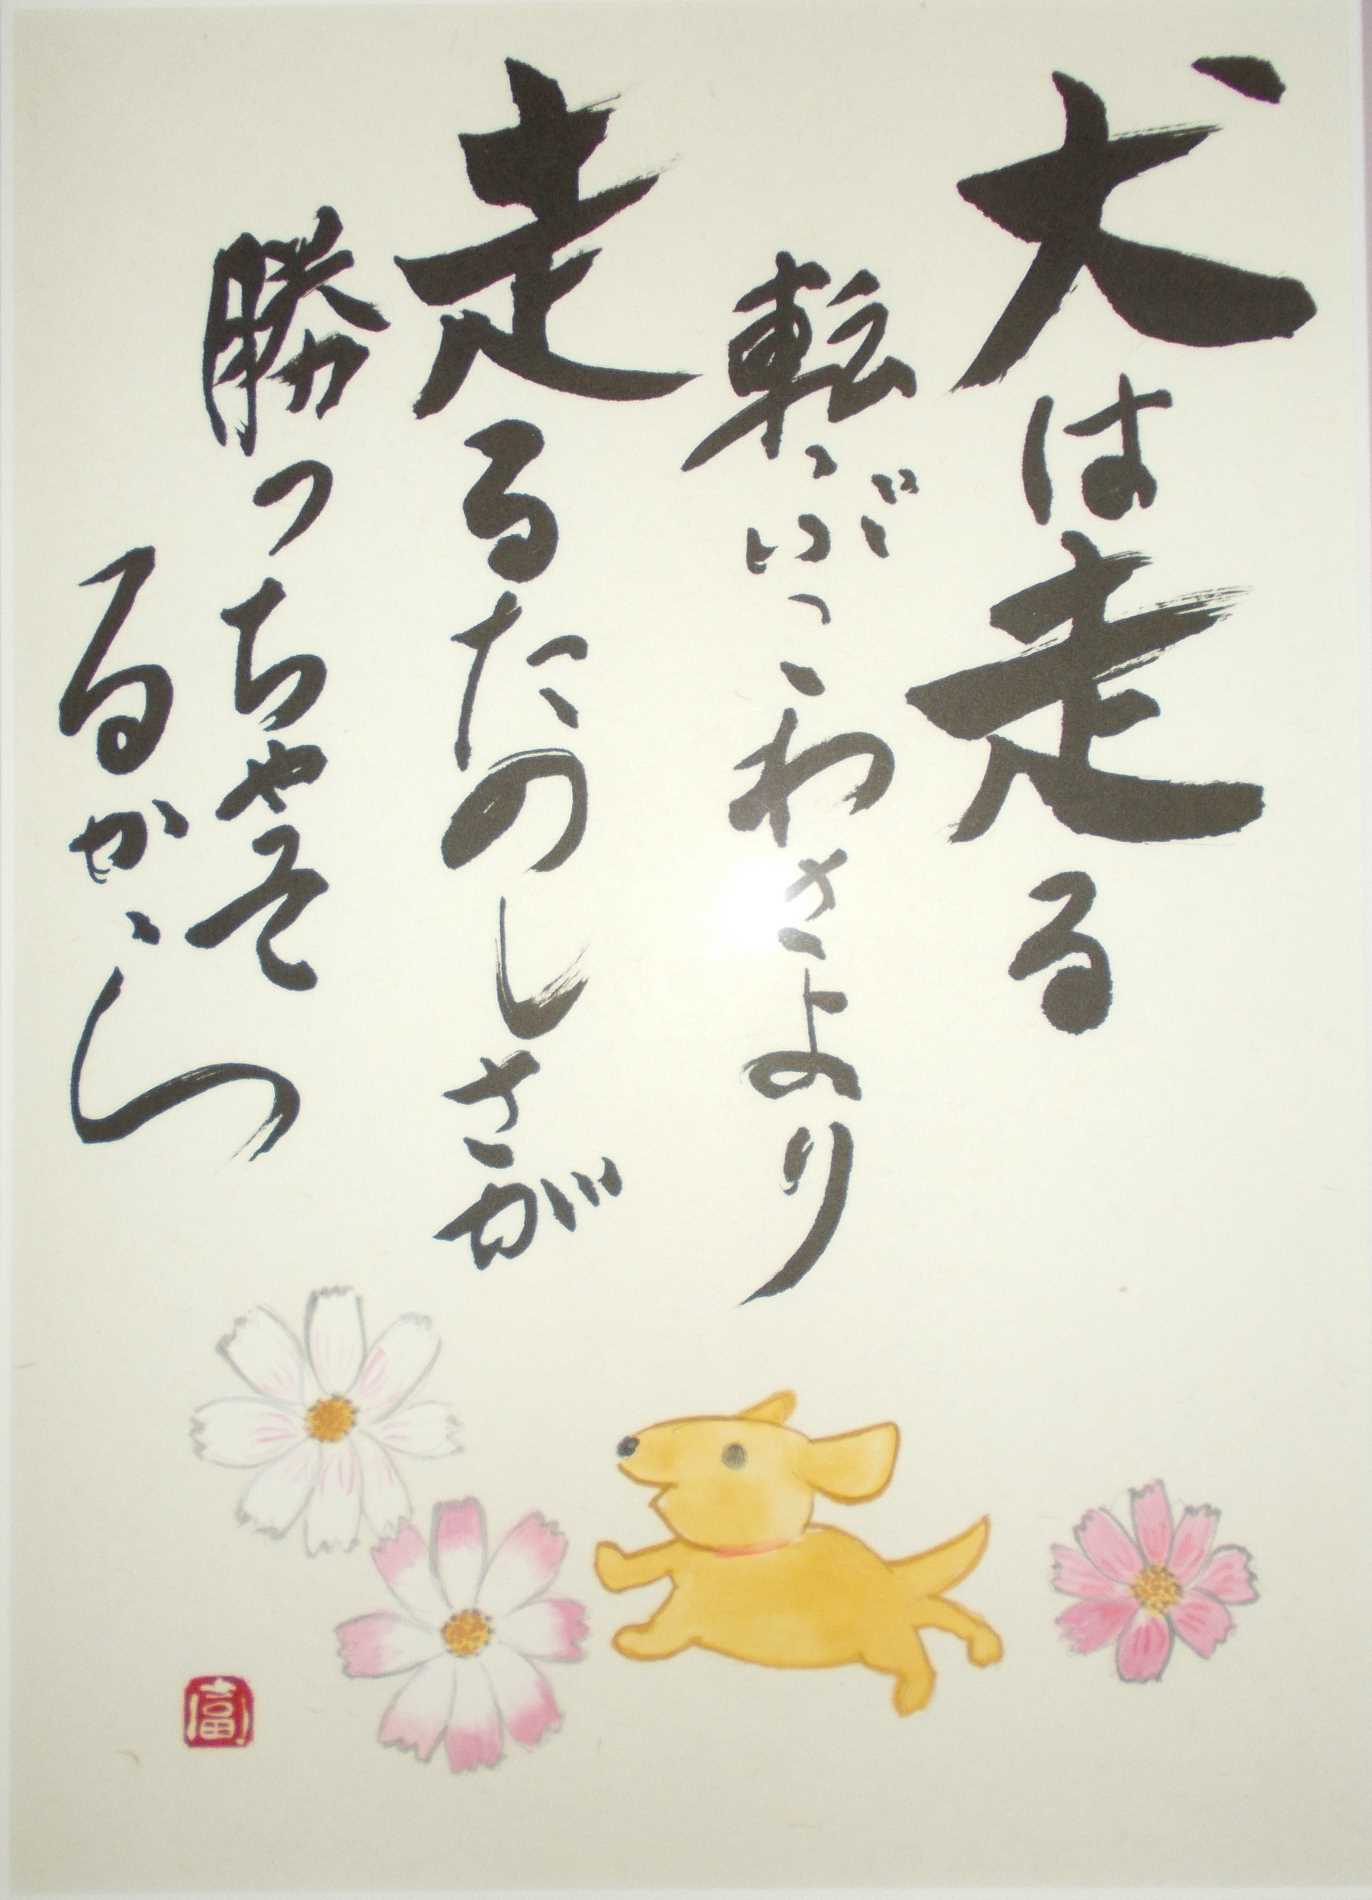 犬は走る
転ぶこわさより
走るたのしさが
勝っちゃ
るから
富